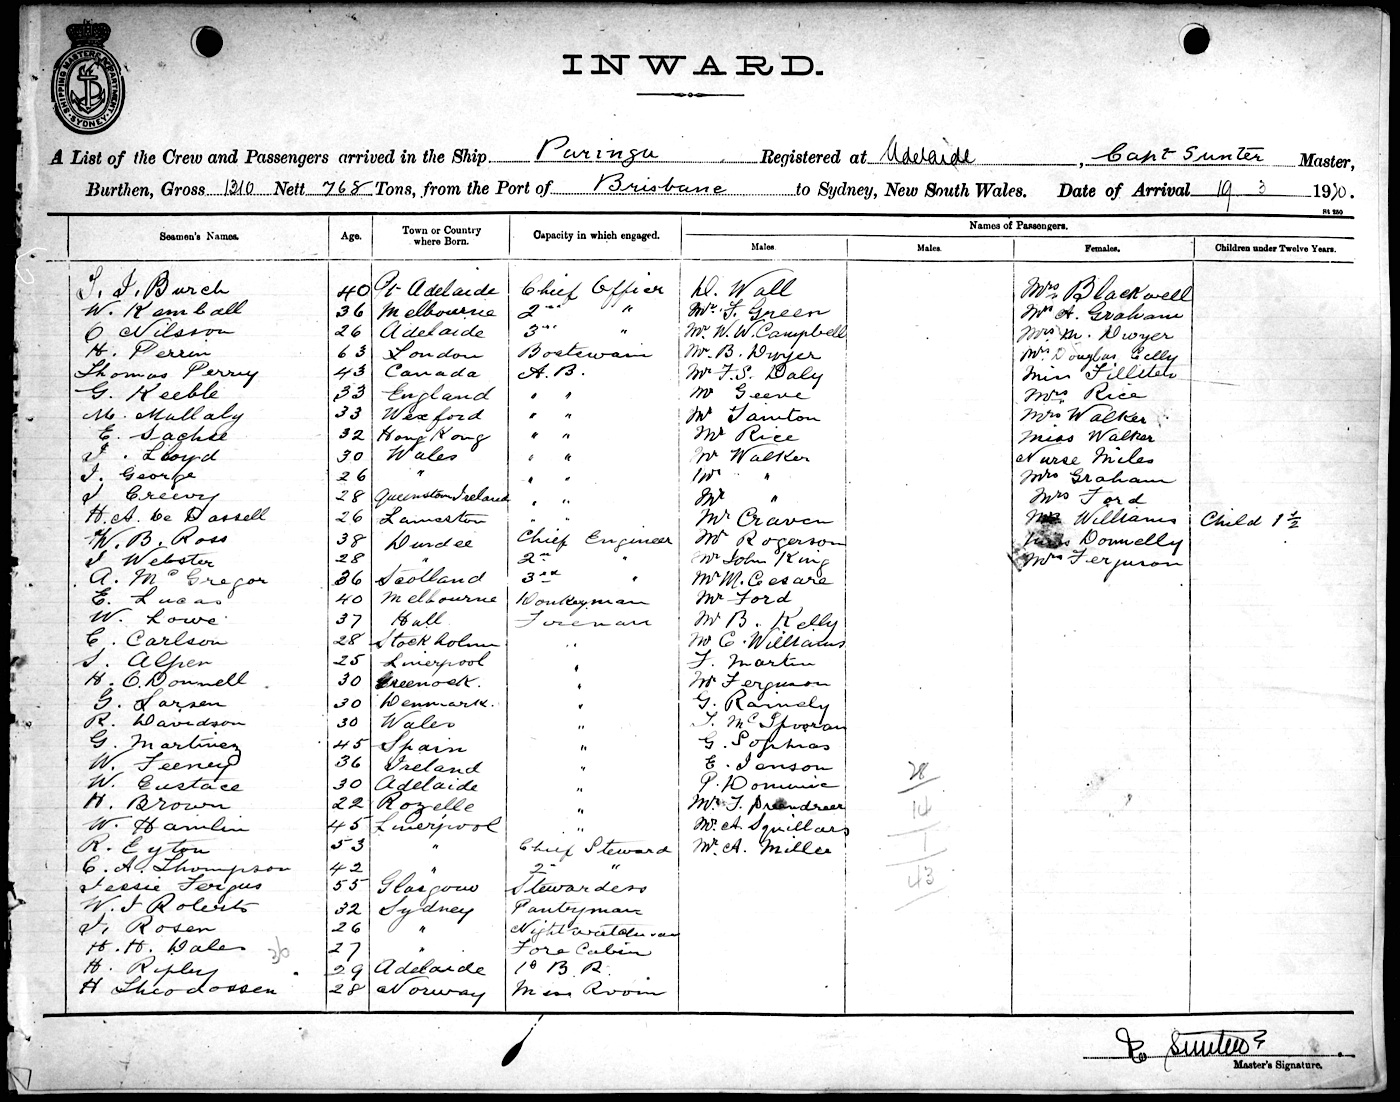 SHIPPING MASTERS DEPARTMENT
SYDNEY
INWARD.
A List of the Crew and Passengers arrived in the Ship Paringa Registered at Adelaide, Capt Sunter Master,
Burthen, Gross 1310 Nett 768 Tons, from the Port of Brisbane to Sydney, New South Wales. Date of Arrival 19 3 1910.
St 250
Seamen's Names. Age. Town or Country where Born. Capacity in which engaged. Names of Passengers.
Males. Males. Females. Children under Twelve Years.
Burch 40 Pt Adelaide Chief Officer D. Wall Mrs Blackwell
W. Kemball 36 Melbourne 2nd " Mr F. Green Mrs A. Graham
C Nilsson 26 Adelaide 3rd " Mr W. W. Campbell Mrs M. Dwyer
H. Perrin 63 London Boatswain Mr B. Dwyer Mrs Douglas
Thomas Perry 43 Canada A.B. Mr F. S. Daly Miss
G. Keeble 33 England " " Mr Geeve Mrs Rice
M. Mullaly 33 Wexford " " Mr Tainton Mrs Walker
E. Sachse 32 Hong Kong " " Mr Rice Miss Walker
Lloyd 30 Wales " " Mr Walker Nurse Miles
J. George 26 " " " Mr " Mrs Graham
J Creevy 28 Queenstown Ireland " " Mr " Mrs Ford
H. A. De Dassell 26 " " Mr Craven Williams Child 1 ½
W. B. Ross 38 Dundee Chief Engineer Mr Rogerson Donnelly
J Webster 28 " 2nd " Mr John King Mrs Ferguson
A. McGregor 36 Scotland 3rd " Mr M. Cesare
E. Lucas 40 Melbourne Donkeyman Mr Ford
W. Lowe 37 Hull Fireman Mr B. Kelly
C. Carlson 28 Stockholm " Mr C. Williams
S. Alpen 25 Liverpool " F. Martin
H. O.Donnell 30 Greenock. " Mr Ferguson
G. Larsen 30 Denmark. " G. Ramely
R. Davidson 30 Wales "
G. Martinez 45 Spain " G. Sophias
W. Feeney 36 Ireland " E. Janson
W. Eustace 30 Adelaide " P. Dominic 28
H. Brown 22 Rozelle " Mr 14
W. Hamlin 45 Liverpool " Mr A Squillars 1
R. Eyton 53 " Chief Steward Mr A. Miller
C. A. Thompson 42 " 2nd " 43
Jessie Fergus 55 Glasgow Stewardess
W. J Roberts 32 Sydney Pantryman
J. Rosen 26 " Nightwatchman
H. H. Dales 36 27 " Fore Cabin
H. Ripley 29 Adelaide B. R.
H Theodossen 28 Norway Mess Room
E Sunter
Master's Signature.